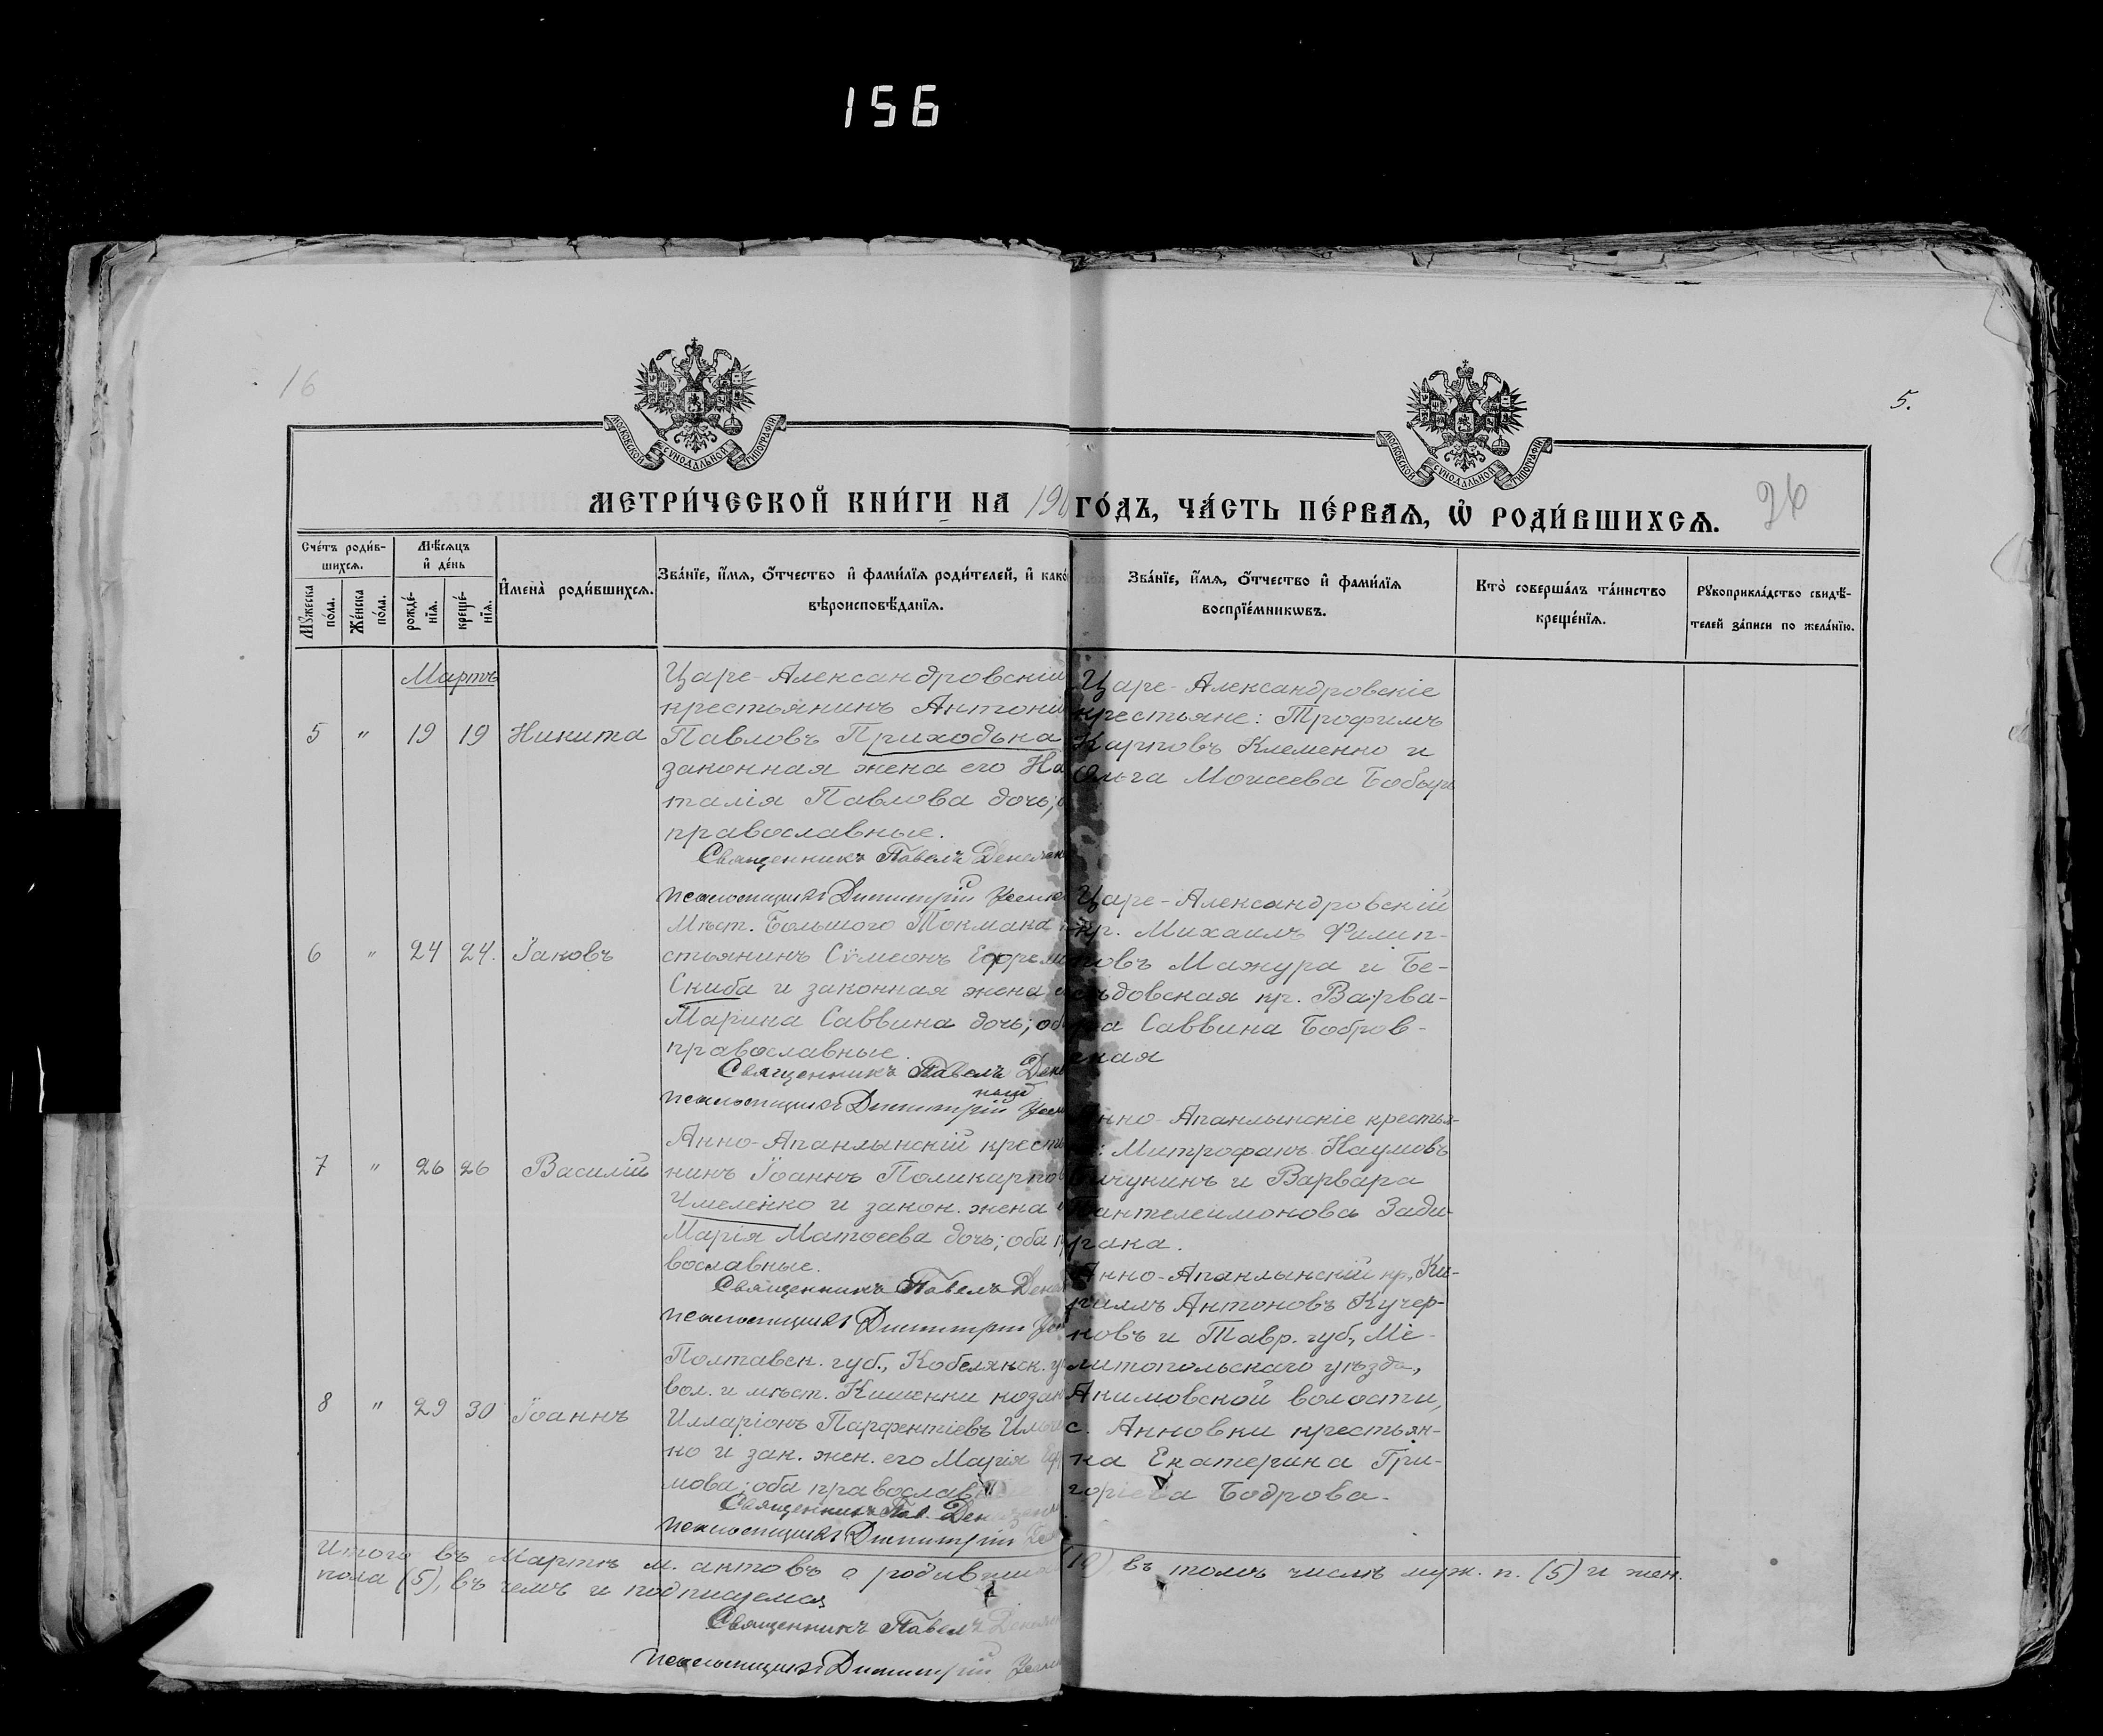 156
16
5.
26
МОСКОВСКОЙ СѴНОДАЛЬНОЙ ТИПОГРАФІИ
МОСКОВСКОЙ СѴНОДАЛЬНОЙ ТИПОГРАФІИ
МЕТРИ́ЧЕСКОЙ КНИ́ГИ НА 190 ГО́ДЪ, ЧА́СТЬ ПЕ́РВАѦ, Ѽ РОДИ́ВШИХСѦ.
Сче́тъ роди́в-
шихсѧ.
Мꙋжеска по́ла.
Же́нска по́ла.
Мѣ́сѧцъ
и҆ де́нь
рожде́-
нїѧ.
креще́-
нїѧ.
И҆мена̀ роди́вшихсѧ.
Зва́нїе, и҆́мѧ, ѻ҆́тчество и҆ фами́лїѧ роди́телей, и҆ како
вѣроисповѣ́данїѧ.
Зва́нїе, и҆́мѧ, ѻ҆́тчество и҆ фами́лїѧ
воспрїе́мникѡвъ.
Кто̀ соверша́лъ та́инство
креще́нїѧ.
Рꙋкоприкла́дство свидѣ́-
телей за́писи по жела́нїю.
Мартъ
5 " 19 19 Никита
Царе-Александровскій
крестьянинъ Антоній
Павловъ Приходька
законная жена его На
талія Павлова дочь;
православные.
Священникъ Павелъ
Псаломщикъ Димитрій
Царе-Александровскіе
крестьяне: Трофимъ
Карповъ Клеменко и
Ольга Моисеева Бобырь
6 " 24 24. Іаковъ
Мѣст. Большого Токмака
стьянинъ Сѵмеонъ Ефрем
Скиба и законная жена
Марина Саввина дочь; об
православные.
Священникъ Павелъ
Псаломщикъ Димитрій
Царе-Александровскій
кр. Михаилъ Филип-
повъ Мажура и Бе-
сѣдовская кр. Варва-
ра Саввина Бобров-
ская
7 " 26 26 Василій
Анно-Апанлынскій кресть
нинъ Іоаннъ Поликарпов
Чмеленко и закон. жена
Марія Матѳеева дочь; оба п
вославные.
Священникъ Павелъ
Псаломщикъ Димитрій
Анно-Апанлынскіе крестья-
: Митрофанъ Наумовъ
Бичукинъ и Варвара
Пантелеимонова Зади-
рака.
8 " 29 30 Іоаннъ
Полтавск. губ., Кобелякск. у
вол. и мѣст. Кишенки козак
Илларіонъ Парфентіевъ
но и зак. жен. его Марія
мова; оба православные
Священникъ Пав.
Псаломщикъ Димитрій
Анно-Апанлынскій кр. Ки-
риллъ Антоновъ Кучер-
ковъ и Тавр. губ., Ме-
литопольскаго уѣзда,
Акимовской волости,
с. Анновки крестьян-
ка Екатерина Гри-
горіева Бодрова.
Итого въ Мартѣ м. актовъ о родивших (10), въ томъ числѣ муж. п. (5) и жен.
пола (5), въ чемъ и подписуемся
Священникъ Павелъ
Псаломщикъ Димитрій